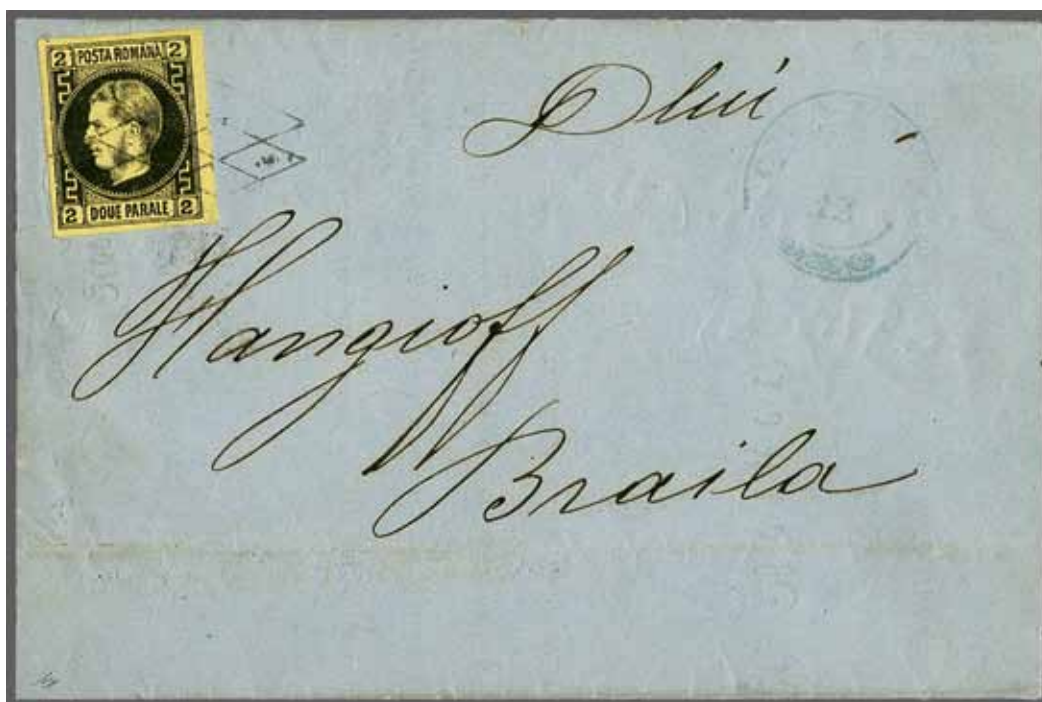 2 POSTA ROMÂNA 2
2 DOUE PARALE 2
Dlui
Hangioff
Braila